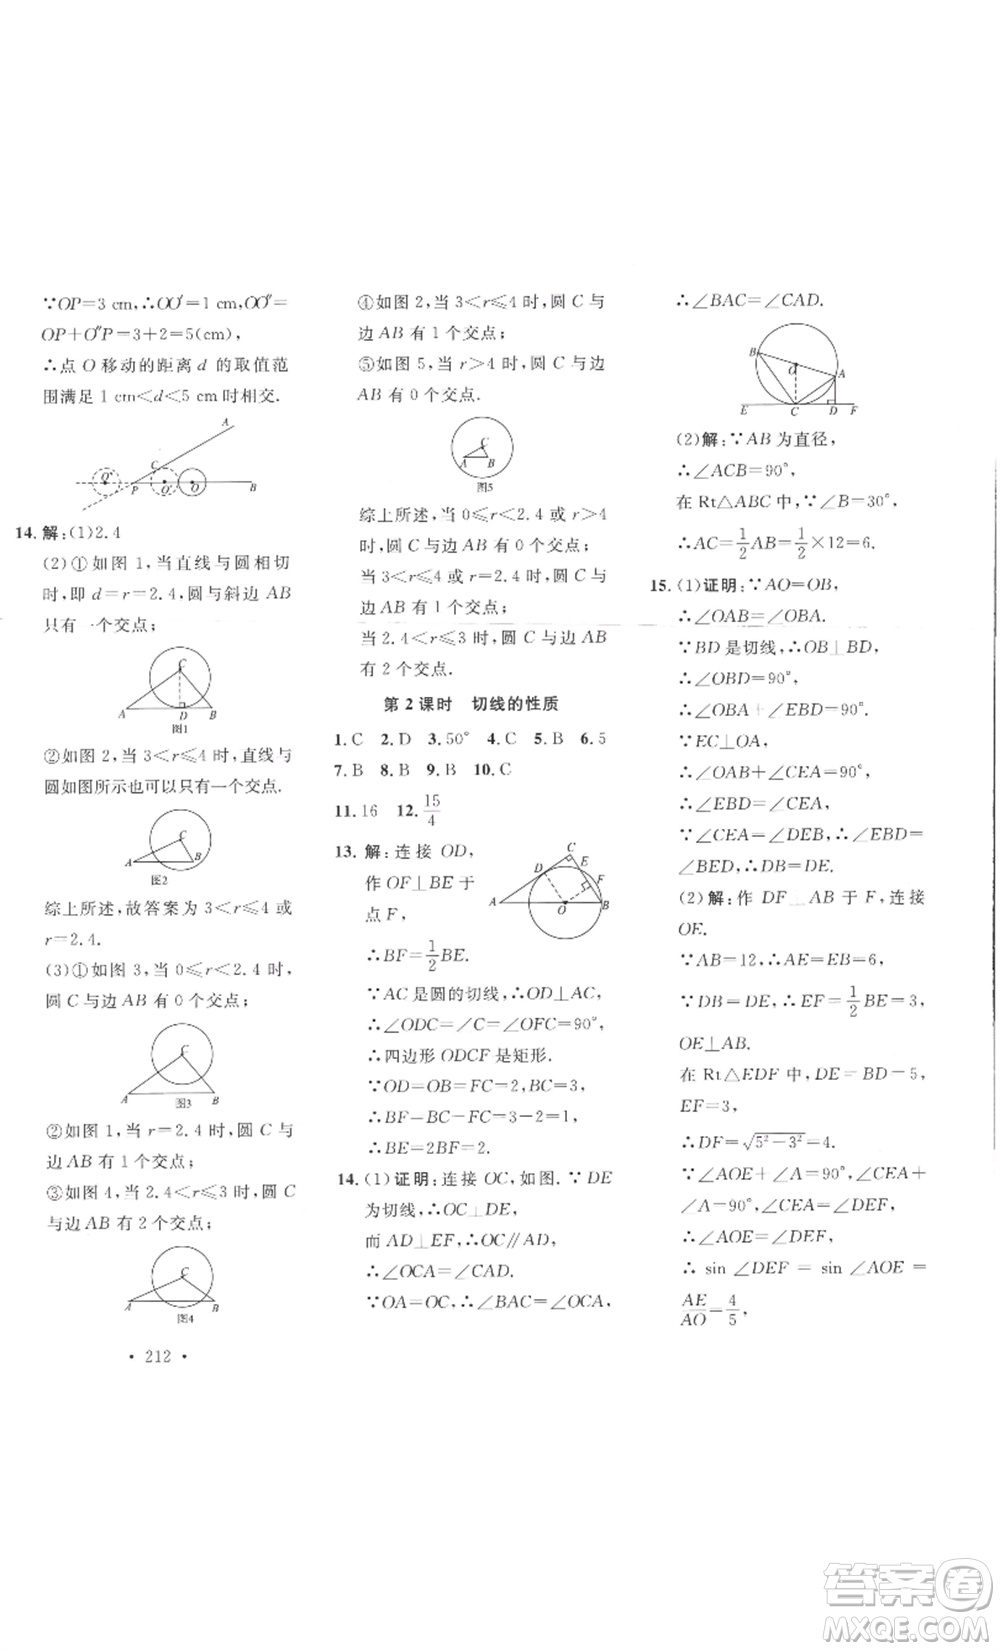 ∵OP=3 cm,∴OO′=1 cm,OO″=
OP+O″P=3+2=5(cm),
∴点 O 移动的距离 d 的取值范
围满足 1 cm<d<5 cm时相交.
A
C
O″
P
O′
O
B
14.解:(1)2.4
(2)①如图 1,当直线与圆相切
时,即 d=r=2.4,圆与斜边 AB
只有一个交点;
C
A
D
B
图1
②如图 2,当 3<r≤4 时,直线与
圆如图所示也只有一个交点.
C
A
B
图2
综上所述,故答案为 3<r≤4 或
r=2.4.
(3)①如图 3,当 0≤r<2.4 时,
圆 C 与边 AB 有 0 个交点;
C
A
B
图3
②如图 1,当 r=2.4 时,圆 C 与
边 AB 有 1 个交点;
③如图 4,当 2.4<r≤3 时,圆 C
与边 AB 有 2 个交点;
C
A
B
图4
• 212 •
④如图 2,当 3<r≤4 时,圆 C 与
边 AB 有 1 个交点;
⑤如图 5,当 r>4 时,圆 C 与边
AB 有 0 个交点.
C
A
B
图5
综上所述,当 0≤r<2.4 或 r>4
时,圆 C 与边 AB 有 0 个交点;
当 3<r≤4 或 r=2.4 时,圆 C 与
边 AB 有 1 个交点;
当 2.4<r≤3 时,圆 C 与边 AB
有 2 个交点.
第 2 课时 切线的性质
1.C 2.D 3.50° 4.C 5.B 6.5
7.B 8.B 9.B 10.C
11.16 12.15/4
13.解:连接 OD,
作 OF⊥BE 于
点 F,
C
D
E
F
A
O
B
∴BF=1/2BE.
∵AC 是圆的切线,∴OD⊥AC,
∴∠ODC=∠C=∠OFC=90°,
∴四边形 ODCF 是矩形.
∵OD=OB=FC=2,BC=3,
∴BF=BC-FC=3-2=1,
∴BE=2BF=2.
14.(1)证明:连接 OC,如图.∵DE
为切线,∴OC⊥DE,
而 AD⊥EF,∴OC∥AD,
∴∠OCA=∠CAD.
∵OA=OC,∴∠BAC=∠OCA,
∴∠BAC=∠CAD.
B
O
A
E
C
D
F
(2)解:∵AB 为直径,
∴∠ACB=90°,
在 Rt△ABC 中,∵∠B=30°,
∴AC=1/2AB=1/2×12=6.
15.(1)证明:∵AO=OB,
∴∠OAB=∠OBA.
∵BD 是切线,∴OB⊥BD,
∴∠OBD=90°,
∴∠OBA+∠EBD=90°.
∵EC⊥OA,
∴∠OAB+∠CEA=90°,
∴∠EBD=∠CEA.
∵∠CEA=∠DEB,∴∠EBD=
∠BED,∴DB=DE.
(2)解:作 DF⊥AB 于 F,连接
OE.
∵AB=12,∴AE=EB=6,
∵DB=DE,∴EF=1/2BE=3,
OE⊥AB.
在 Rt△EDF 中,DE=BD=5,
EF=3,
∴DF=√5²-3²=4.
∵∠AOE+∠A=90°,∠CEA+
∠A=90°,
∴∠AOE=∠DEF,
∴ sin ∠DEF = sin ∠AOE =
AE/AO=4/5,
答案卷
MXQE.COM